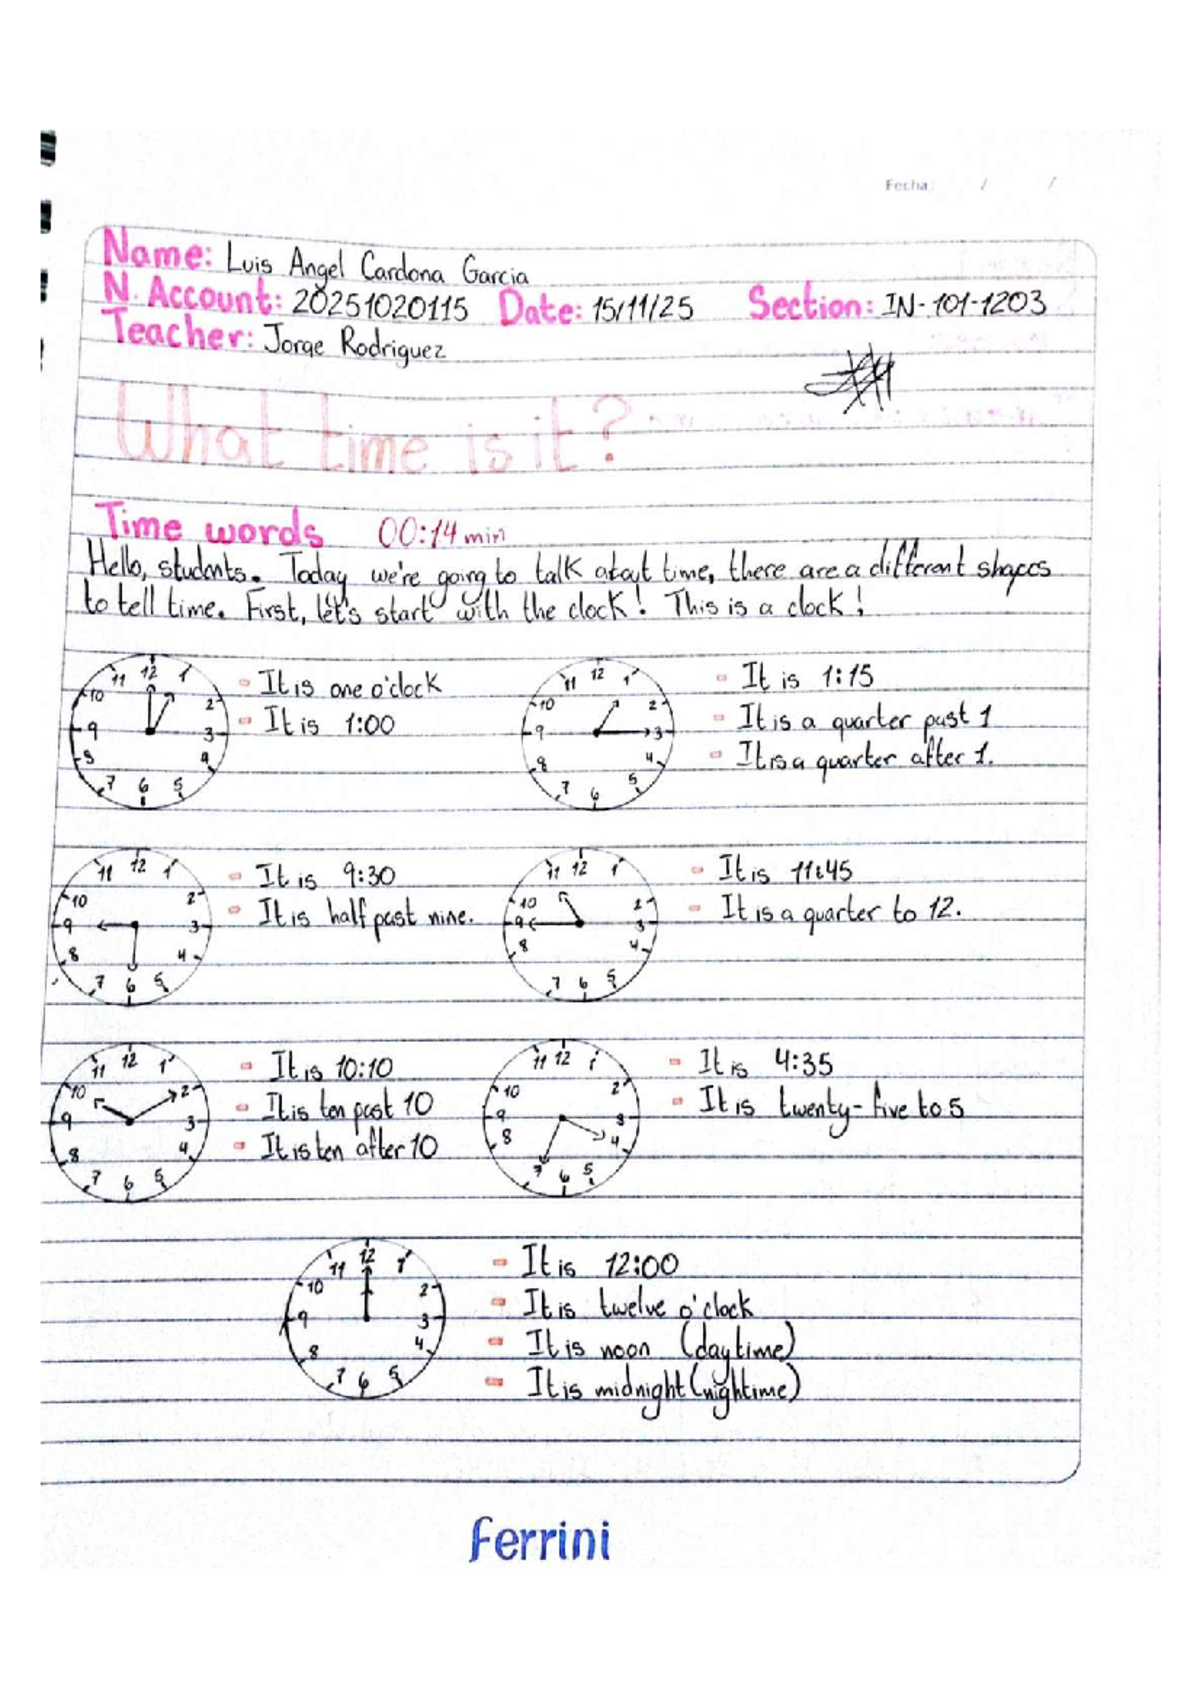 Fecha / /
Name: Luis Angel Cardona Garcia
N. Account: 20251020115 Date: 15/11/25 Section: IN-101-1203
Teacher: Jorge Rodriguez
What time is it?
Time words 00:14 min
Hello, students. Today we're going to talk about time, there are a different shapes
to tell time. First, let's start with the clock! This is a clock!
12 1 2 3 4 5 6 7 8 9 10 11
- It is one o'clock
- It is 1:00
12 1 2 3 4 5 6 7 8 9 10 11
- It is 1:15
- It is a quarter past 1
- It is a quarter after 1.
12 1 2 3 4 5 6 7 8 9 10 11
- It is 9:30
- It is half past nine.
12 1 2 3 4 5 6 7 8 9 10 11
- It is 11:45
- It is a quarter to 12.
12 1 2 3 4 5 6 7 8 9 10 11
- It is 10:10
- It is ten past 10
- It is ten after 10
12 1 2 3 4 5 6 7 8 9 10 11
- It is 4:35
- It is twenty-five to 5
12 1 2 3 4 5 6 7 8 9 10 11
- It is 12:00
- It is twelve o'clock
- It is noon (daytime)
- It is midnight (nightime)
Ferrini